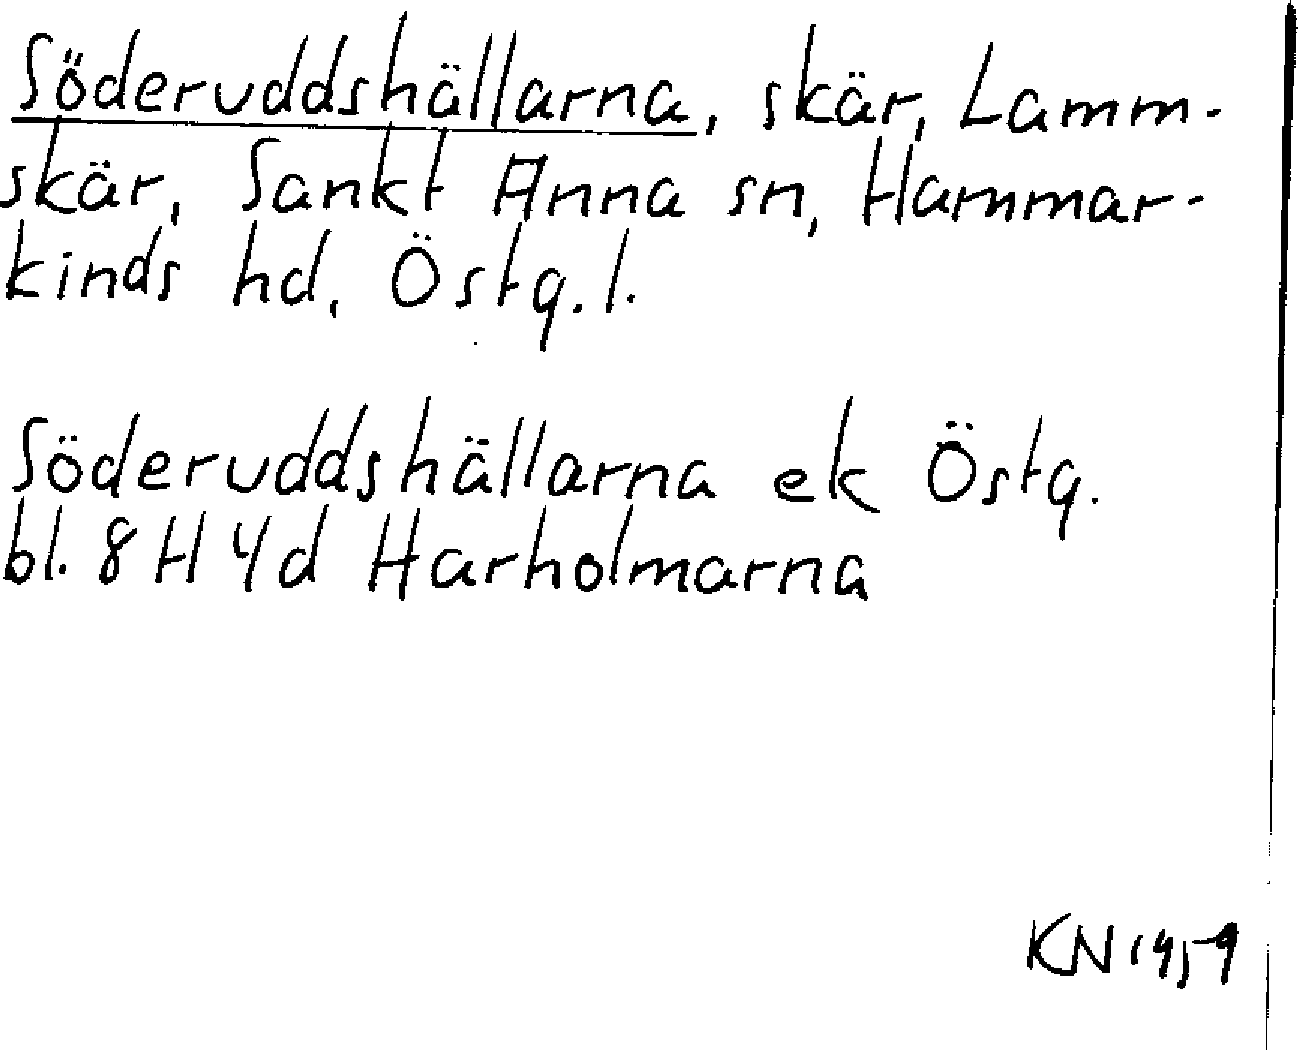 Söderuddshällarna, skär, Lamm-
skär, Sankt Anna sn, Hammar-
kinds hd, Östg.l.
Söderuddshällarna ek Östg.
bl. 8H4d Harholmarna
KN 1959